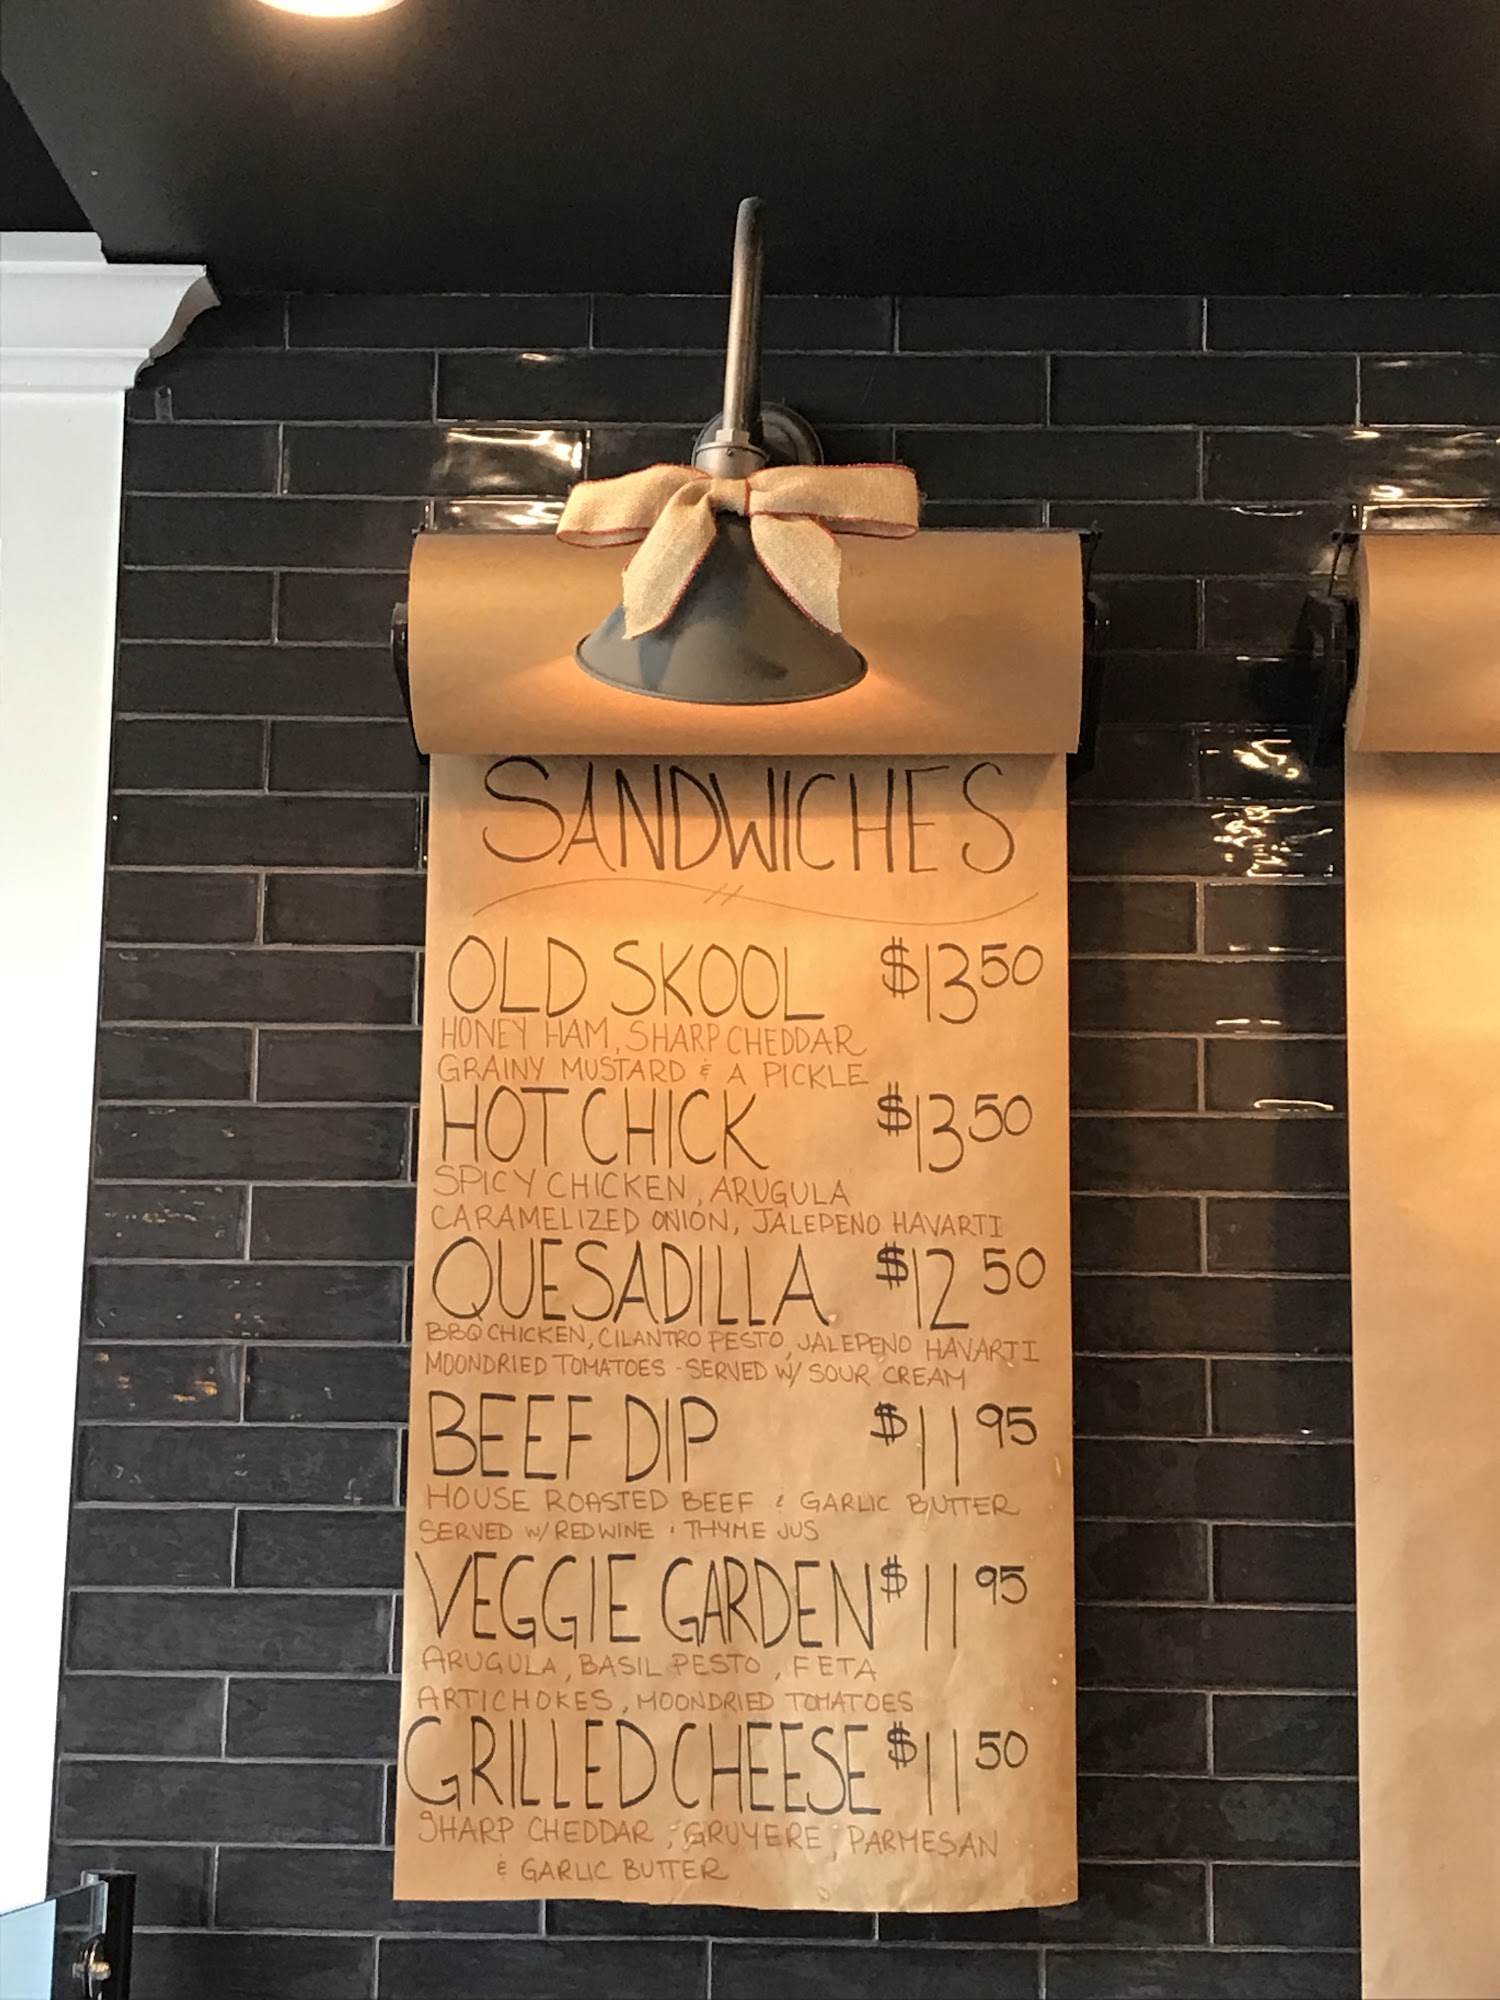 SANDWICHES
OLD SKOOL $13 50
HONEY HAM, SHARP CHEDDAR
GRAINY MUSTARD & A PICKLE
HOT CHICK $13 50
SPICY CHICKEN, ARUGULA
CARAMELIZED ONION, JALEPENO HAVARTI
QUESADILLA $12 50
BBQ CHICKEN, CILANTRO PESTO, JALEPENO HAVARTI
MOONDRIED TOMATOES - SERVED W/ SOUR CREAM
BEEF DIP $11 95
HOUSE ROASTED BEEF & GARLIC BUTTER
SERVED W/ REDWINE & THYME JUS
VEGGIE GARDEN $11 95
ARUGULA, BASIL PESTO, FETA
ARTICHOKES, MOONDRIED TOMATOES
GRILLED CHEESE $11 50
SHARP CHEDDAR, GRUYERE, PARMESAN
& GARLIC BUTTER